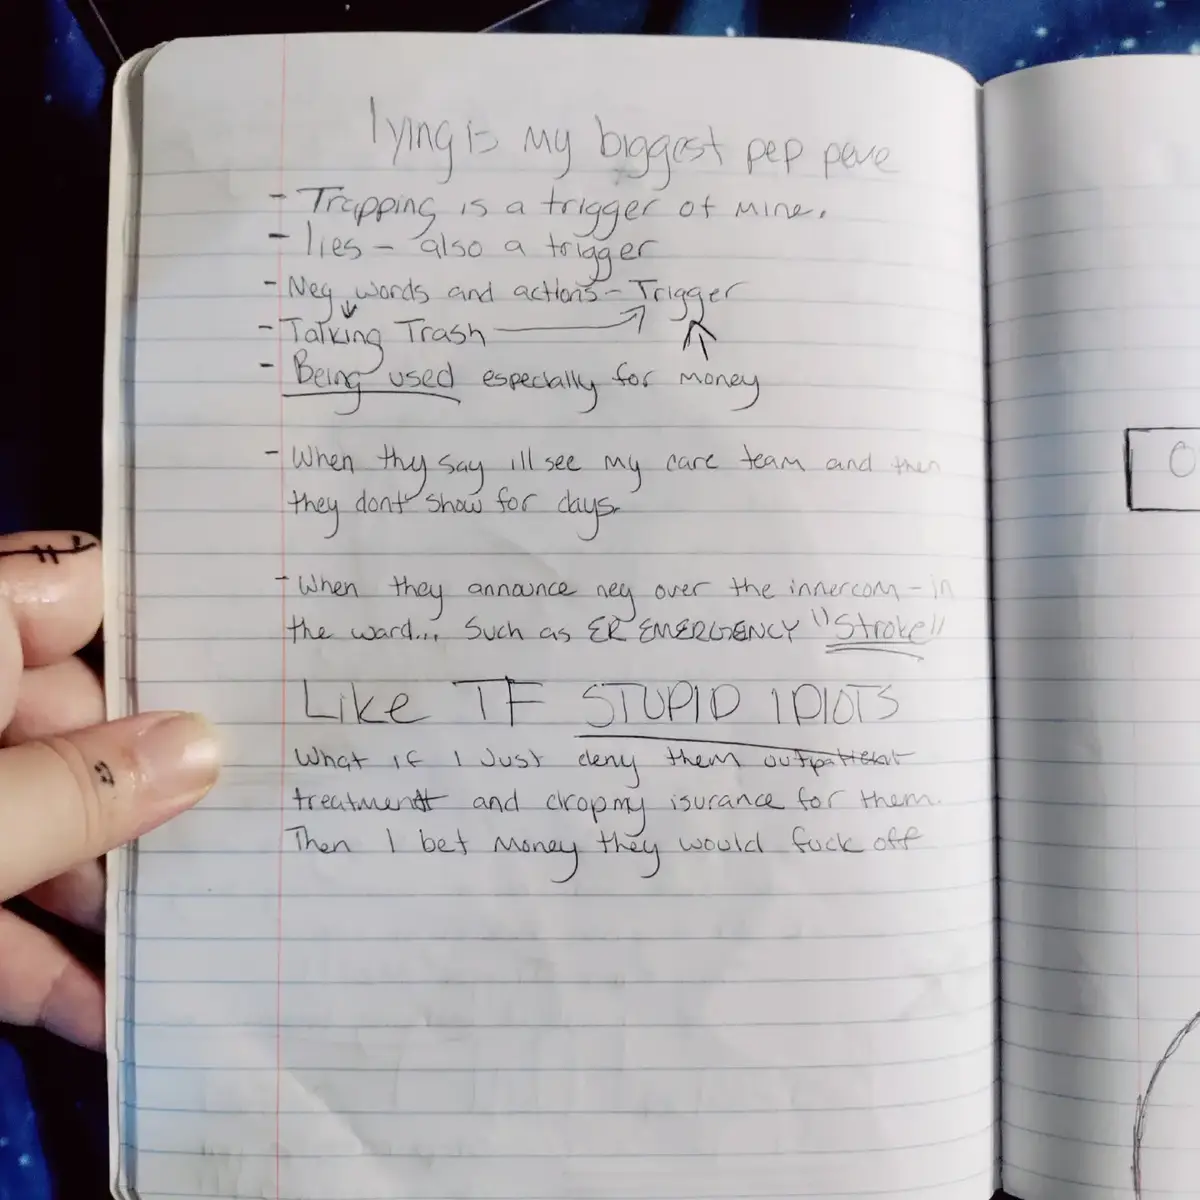 lying is my biggest pep peve
- Trapping is a trigger of mine.
- lies - also a trigger
- Neg words and actions - Trigger
- Talking Trash
- Being used especially for money
- When thy say ill see my care team and then
they dont show for days.
- When they announce neg over the innercom - in
the ward... Such as ER EMERGENCY "Stroke"
Like TF STUPID IDIOTS
What if I Just deny them outpatient
treatment and drop my isurance for them.
Then I bet money they would fuck off